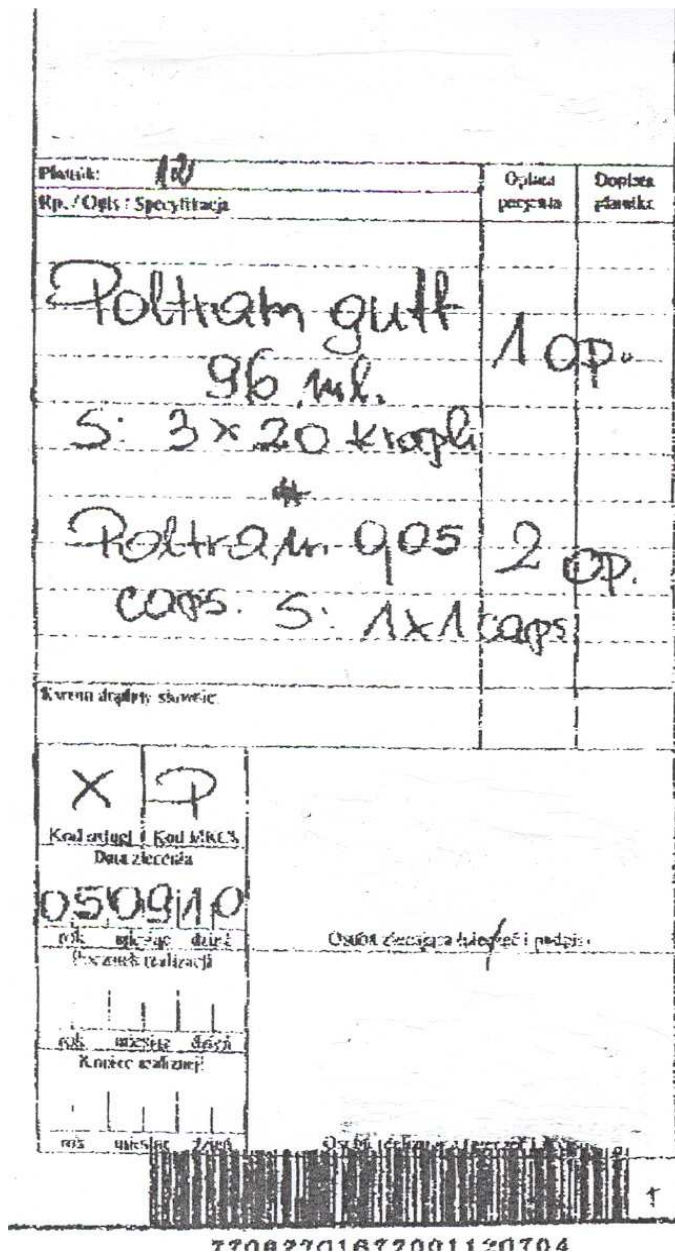 Płatnik: 12
Rp. / Opis / Specyfikacja
Opłata
pacjenta
Dopłata
płatnika
Poltram gutt
96 ml.
1 op.
S: 3 x 20 kropli
#
Poltram 0,05
2 op.
caps. S: 1x1 caps
Kwota dopłaty słownie:
X P
Kod usługi Kod MRCS
Data zlecenia
05 09 10
rok miesiąc dzień
Początek realizacji
rok miesiąc dzień
Koniec realizacji
rok miesiąc dzień
Osoba zlecająca (pieczęć i podpis)
1
77082701677001120704